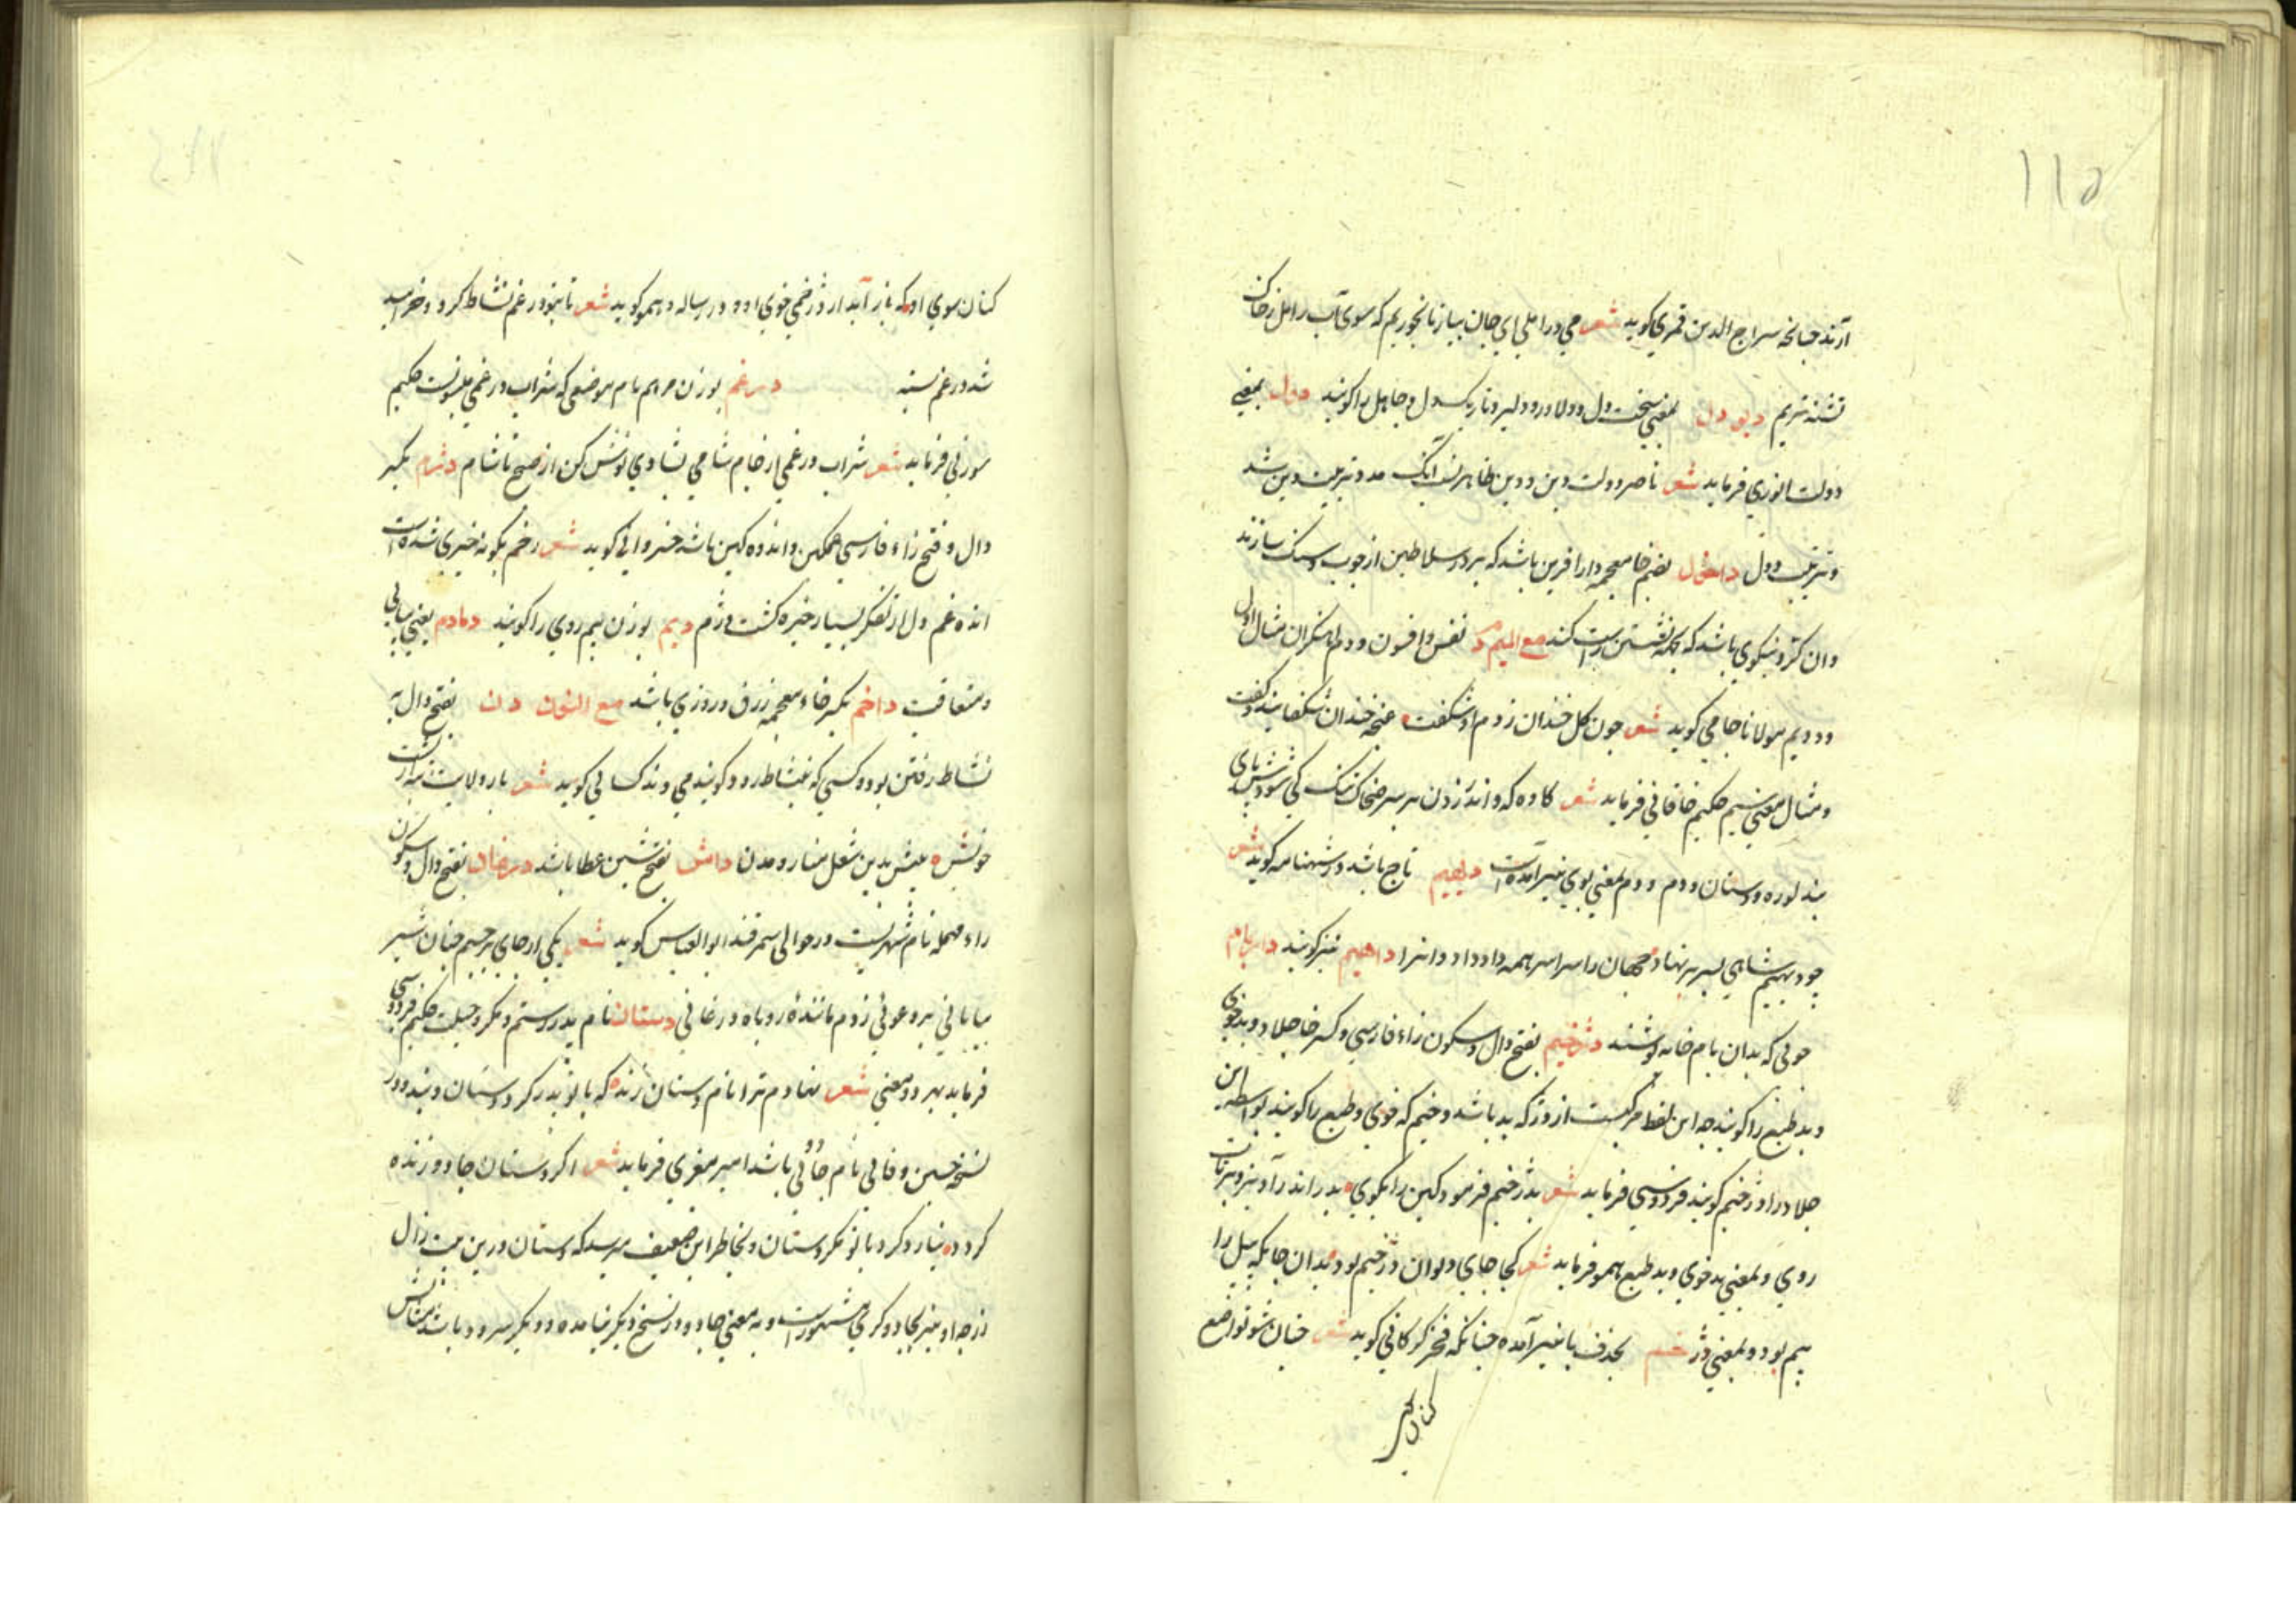 ۱۱۵
آرند چنانچه سراج الدین قمری کوید شعر می در املی ای جان بیار تا بخوریم که سوی آب را مل زخاک
تشنه تریم دیو دل بمعنی سخت دل و دلاور و دلیر و تاریک دل و جاهل را کویند دول بمعنی
دولت انوری فرماید شعر ناصر دولت و دین و دین طاهر نسب آنک مدد تربیت دین شد
و تربیت دول داخول بضم خا معجمه دارافزین باشد که بر در سلاطین از چوب و سنک سازند
وان نیکوی باشد که بجهة نشستن راست کنند مع المیم دم نفس و افسون ودم آهنکران مثال اول
ودویم مولانا جامی کوید شعر چون کل خندان زدم او شکفت غنچه خندان شکفانید و کفت
ومثال معنی سیم حکیم خاقانی فرماید شعر کاوه که داند زدن بر سر ضحاک پتک کی شودش پای
بند کوره و سندان و دم و دم بمعنی بوی نیز آمده است دیهیم تاج باشد در شهنامه کوید شعر
چو دیهیم شاهی بسر بر نهاد جهان را سراسر همه داد داد و انرا داهیم نیز کویند داربام
چوبی که بدان بام خانه پوشند دژخیم بفتح دال و سکون زاء فارسی و کسر خا جلاد و بدخوی
و بد طبع را کویند چه این لفظ مرکبست از دژ که بد باشد و خیم که خوی و طبع را کویند بواسطه این
جلاد را دژخیم کویند فردوسی فرماید شعر بدژخیم فرمود کین را بکوی بدار اندر آویز و برتاب
روی و بمعنی بدخوی و بد طبع همو فرماید شعر کجا جای دیوان دژخیم بود بدان جایکه پیل را
بیم بود و بمعنی دژخیم بحذف یا نیز آمده چنانکه فخر کرکانی کوید شعر چنان شو تواضع
کنان
کنان سوی او که باز آید از دژخمی خوی او و در رساله دهم کوید شعر تا بتو در غم نشاط کرد و خرامید
شد در غم بسته درغم بوزن مرهم نام موضعی که شراب درغمی منسوبست حکیم
سوزنی فرماید شعر شراب درغمی از جام شامی بشادی نوش کن از صبح تا شام دژم بکسر
دال و فتح زاء فارسی غمکین و اندوه کین باشد خسروانی کوید شعر رخم بکونه خیری شده است
انده غم دل از تفکر بسیار خیره کشت و دژم دیم بوزن نیم روی را کویند دمادم یعنی پیاپی
و متعاقب داخم بکسر خاء معجمه رزق و روزی باشد مع النون دن بفتح دال به
نشاط رفتن بود و کسی که بنشاط رود کویند می دند کسائی کوید شعر
بفتح شین عطا باشد درغان بفتح دال و سکون
راء مهمله نام شهریست در حوالی سمرقند ابوالعباس کوید شعر یکی از جای برجستم چنان شیر
بیابانی و غیوی بر زدم ماننده روباه درغانی دستان نام پدر رستم و مکر و حیلت حکیم فردوسی
فرماید بهر دو معنی شعر نهادم ترا نام دستان زند که با تو پدر کرد دستان و بند و در
نسخه حسین وفائی نام جادوئی باشد امیر معزی فرماید شعر اکر دستان جادو زنده
کردد نیارد کرد با تو مکر و دستان و بخاطر این ضعیف میرسد که دستان درین بیت زال
زر چه او نیز بجادوکری مشهور است و به معنی جادو در نسخ دیکر نیامده و دیکر سرود باشد مثالش